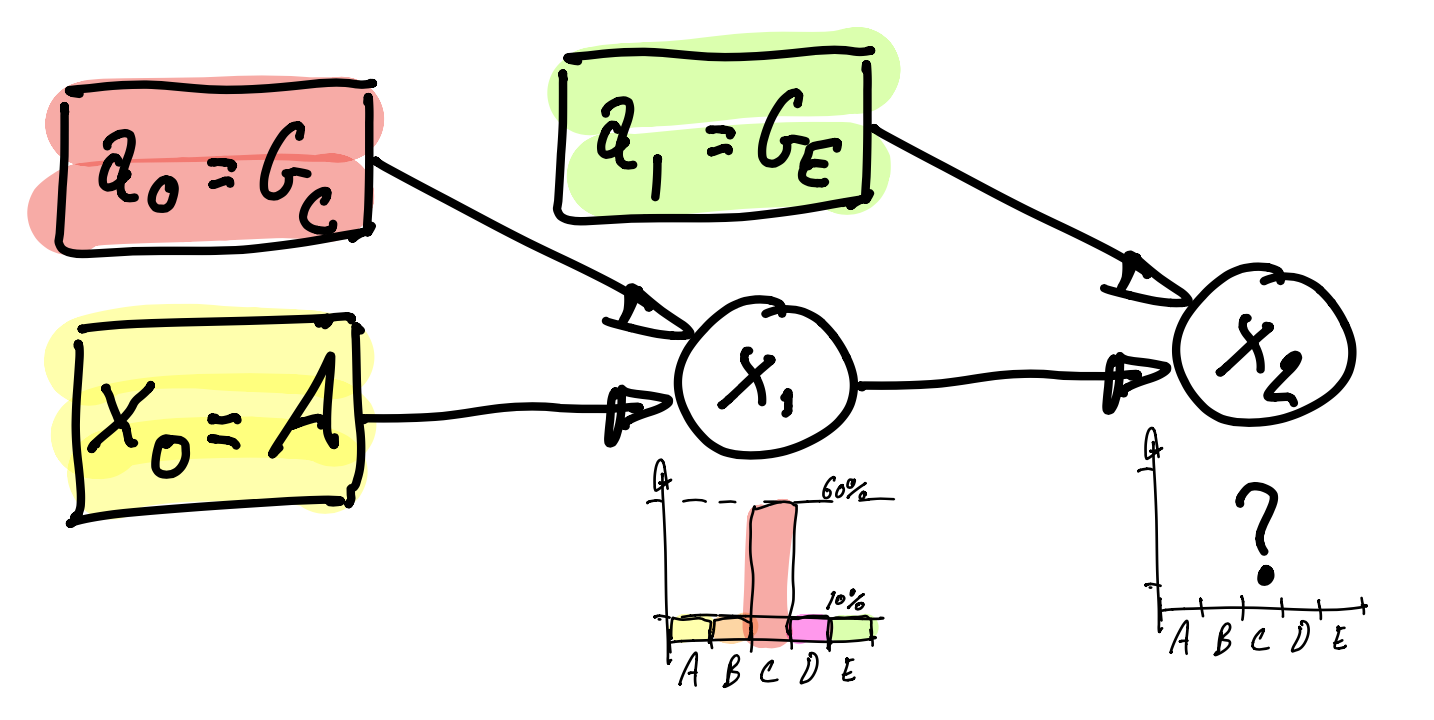 a₀ = G_C
a₁ = G_E
x₀ = A
X₁
X₂
60%
10%
A B C D E
?
A B C D E